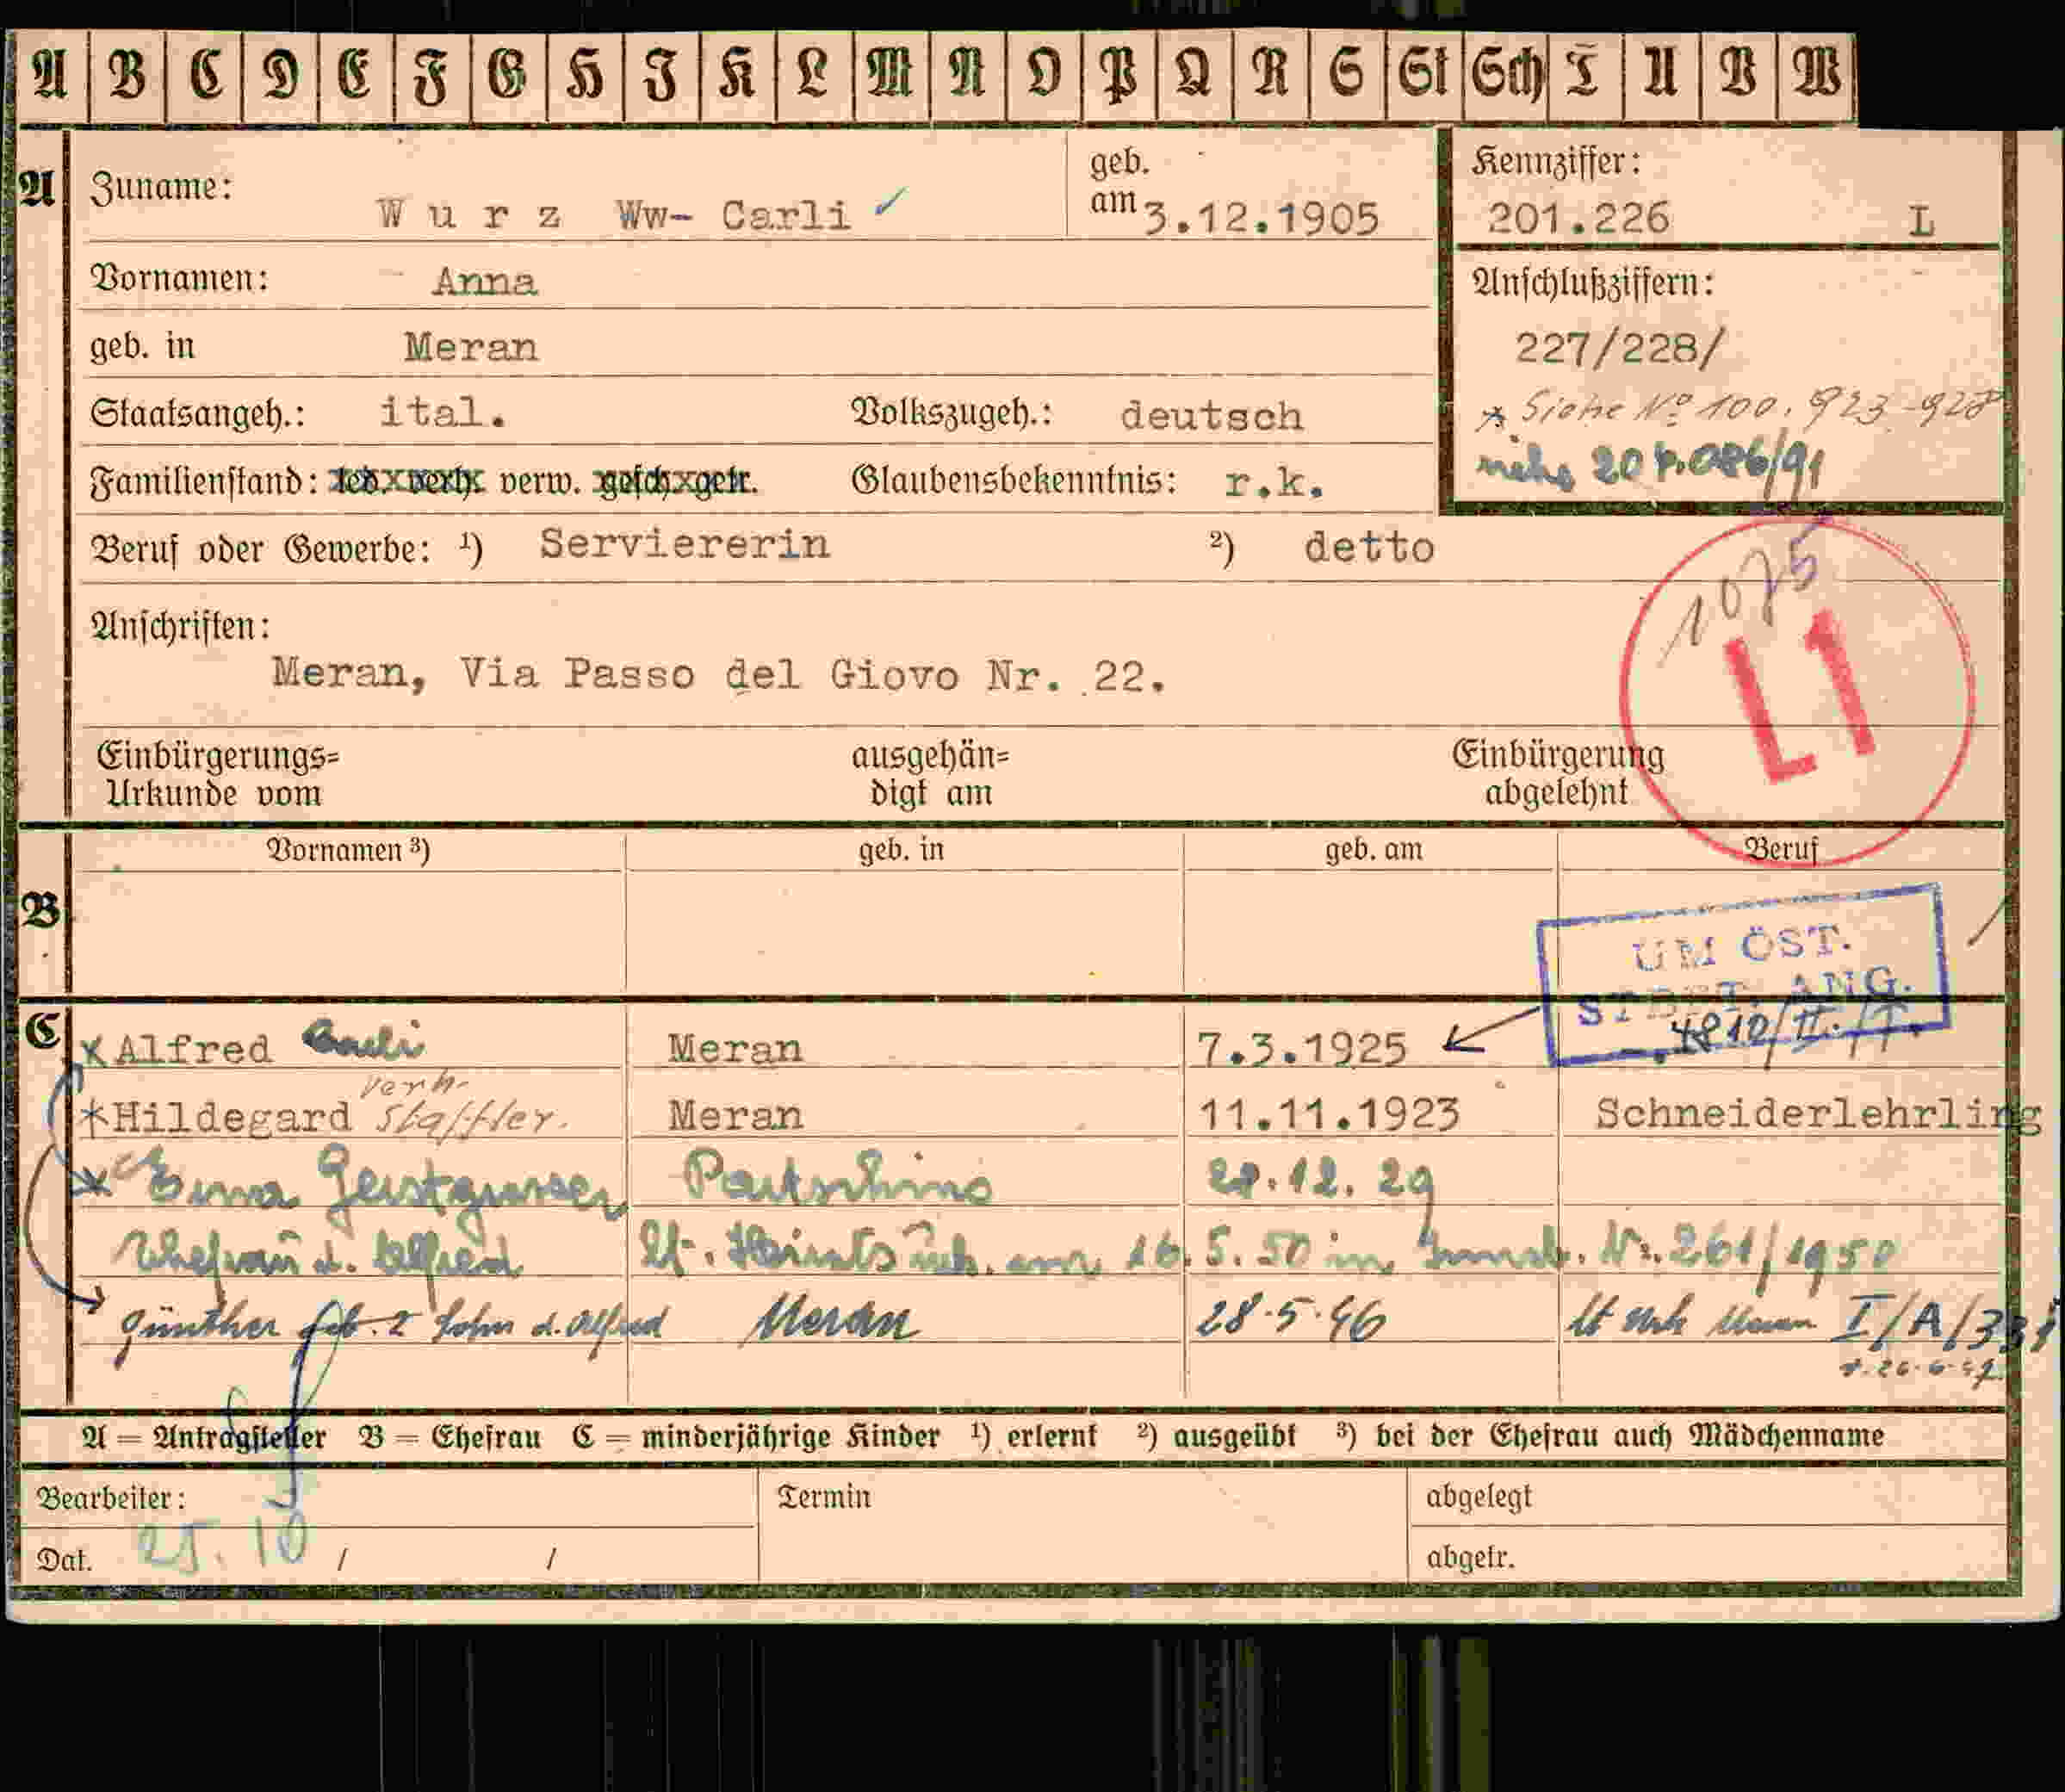 A B C D E F G H J K L M N O P Q R S St Sch T U V W
A Zuname: Wurz Ww- Carli ✓ geb. am 3.12.1905
Kennziffer: 201.226 L
Vornamen: Anna
Anschlußziffern:
227/228/
geb. in Meran
Siehe No 100.923-928
Staatsangeh.: ital. Volkszugeh.: deutsch
Familienstand: led. verh. verw. gesch. getr. Glaubensbekenntnis: r.k.
Beruf oder Gewerbe: ¹) Serviererin ²) detto
1075
L1
Anschriften:
Meran, Via Passo del Giovo Nr. 22.
Einbürgerungs=
Urkunde vom
ausgehän=
digt am
Einbürgerung
abgelehnt
B Vornamen ³) geb. in geb. am Beruf
UM ÖST.
ST ANG.
4812/II./T.
C Alfred Carli Meran 7.3.1925
verh.
*Hildegard Staffler. Meran 11.11.1923 Schneiderlehrling
Partschins 29
Ehefrau d. Alfred lt. Heiratsurk. am 16.5.50 in Innsb. Nr. 261/1950
Günther geb. Sohn d. Alfred Meran 28.5.46 lt Urk Meran I/A/331
A = Antragsteller B = Ehefrau C = minderjährige Kinder ¹) erlernt ²) ausgeübt ³) bei der Ehefrau auch Mädchenname
Bearbeiter: Termin abgelegt
Dat. 25.10 / / abgetr.